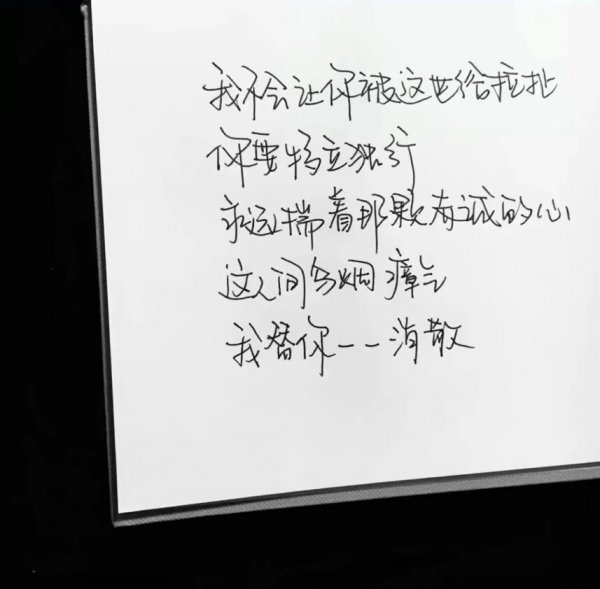 我不会让你被这世给拉扯
你要特立独行
永远揣着那颗赤诚的心
这人间乌烟瘴气
我替你一一消散